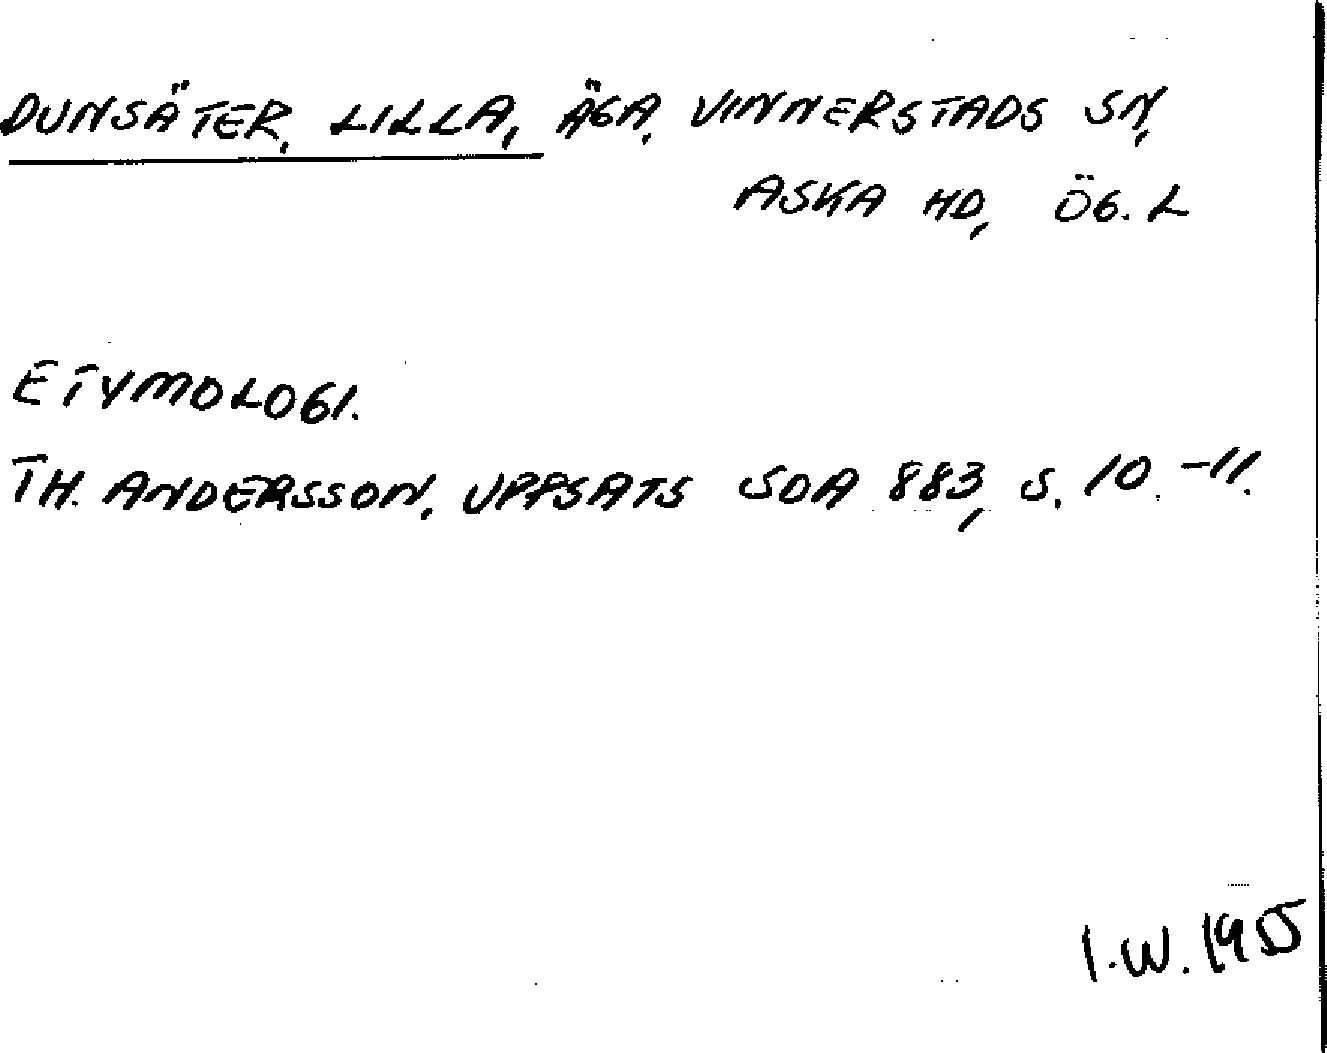 DUNSÄTER, LILLA, ÄGA, VINNERSTADS SN,
ASKA HD, ÖG. L
ETYMOLOGI.
TH. ANDERSSON, UPPSATS SOA 883, S. 10.-11.
I.W. 1955